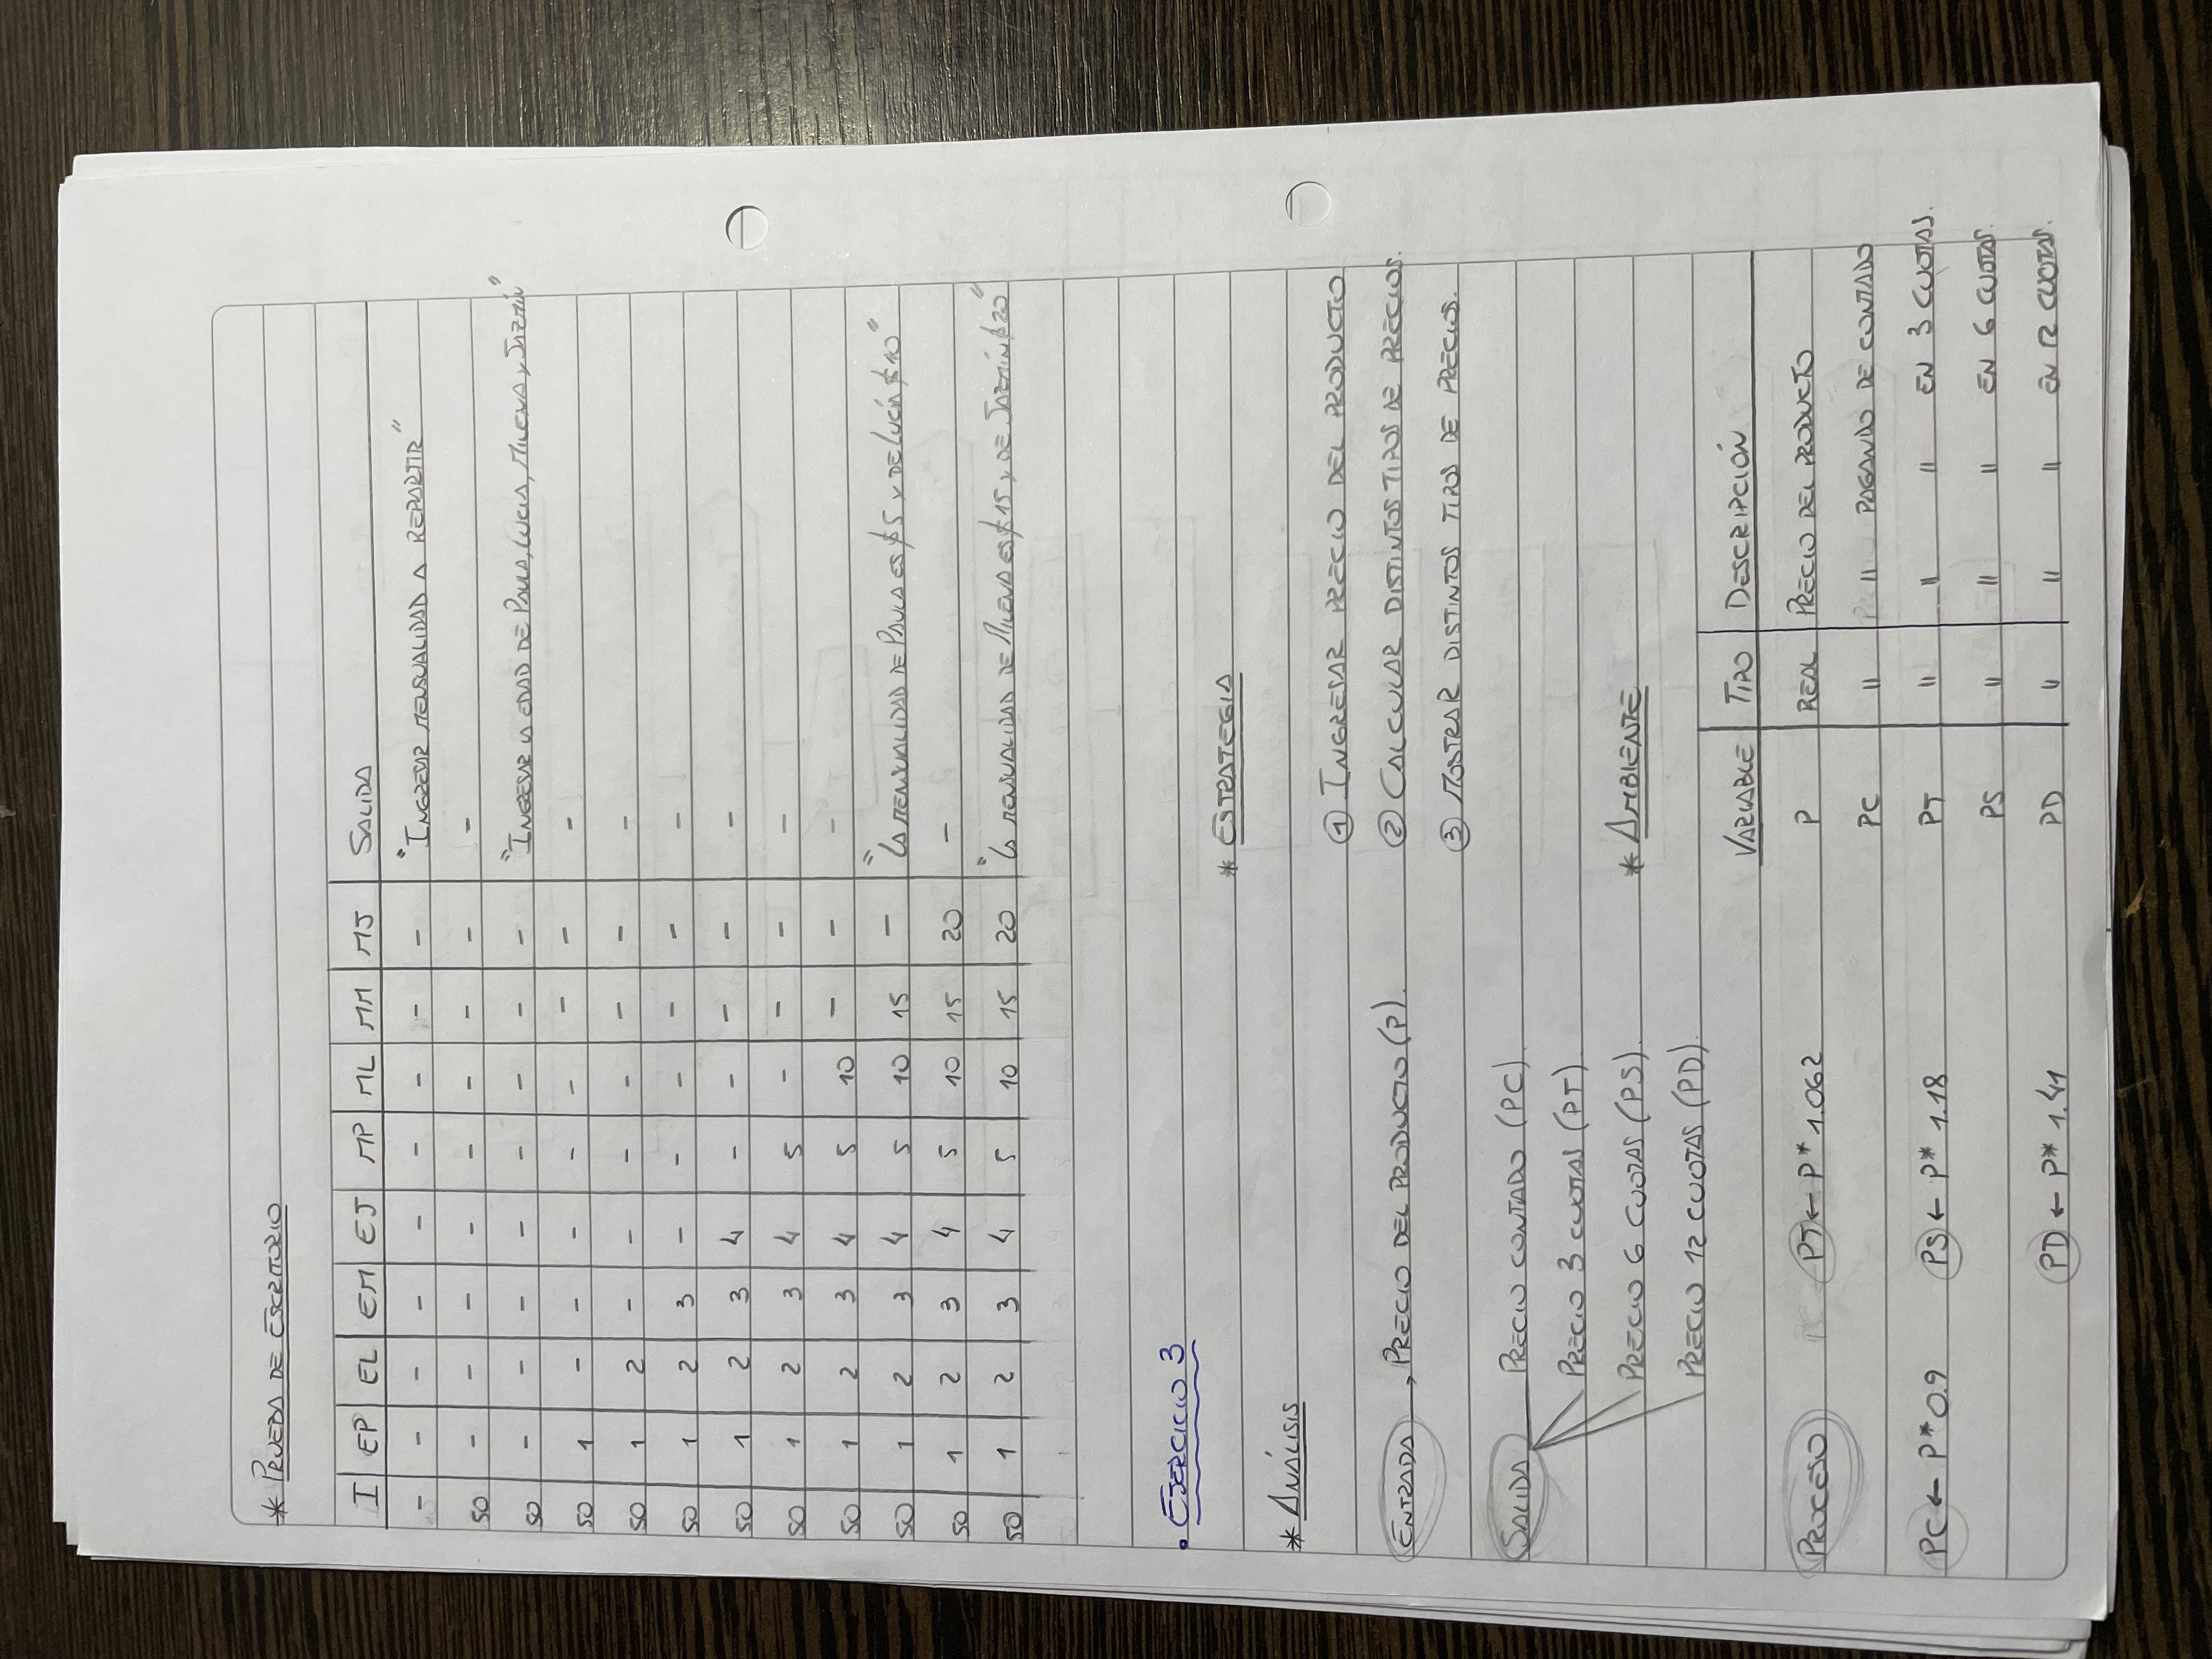 * PRUEBA DE ESCRITORIO
I EP EL EM EJ MP ML MM MJ SALIDA
- - - - - - - - - "INGRESAR MENSUALIDAD A REPARTIR"
50 - - - - - - - - -
50 - - - - - - - - "INGRESAR LA EDAD DE PAULA, LUCIA, MILENA y JAZMÍN"
50 1 - - - - - - - -
50 1 2 - - - - - - -
50 1 2 3 - - - - - -
50 1 2 3 4 - - - - -
50 1 2 3 4 5 - - - -
50 1 2 3 4 5 10 - - -
50 1 2 3 4 5 10 15 - "LA MENSUALIDAD DE PAULA ES $5 y DE LUCÍA $10"
50 1 2 3 4 5 10 15 20 -
50 1 2 3 4 5 10 15 20 "LA MENSUALIDAD DE MILENA ES $15 y DE JAZMÍN $20"
• EJERCICIO 3
* ANÁLISIS
ENTRADA → PRECIO DEL PRODUCTO (P).
SALIDA PRECIO CONTADO (PC).
PRECIO 3 CUOTAS (PT).
PRECIO 6 CUOTAS (PS).
PRECIO 12 CUOTAS (PD).
PROCESO PT ← P * 1.062
PC ← P * 0.9 PS ← P * 1.18
PD ← P * 1.41
* ESTRATEGIA
① INGRESAR PRECIO DEL PRODUCTO
② CALCULAR DISTINTOS TIPOS DE PRECIOS.
③ MOSTRAR DISTINTOS TIPOS DE PRECIOS.
* AMBIENTE
VARIABLE TIPO DESCRIPCIÓN
P REAL PRECIO DEL PRODUCTO
PC " " PAGANDO DE CONTADO
PT " " " EN 3 CUOTAS.
PS " " " EN 6 CUOTAS.
PD " " " EN 12 CUOTAS.